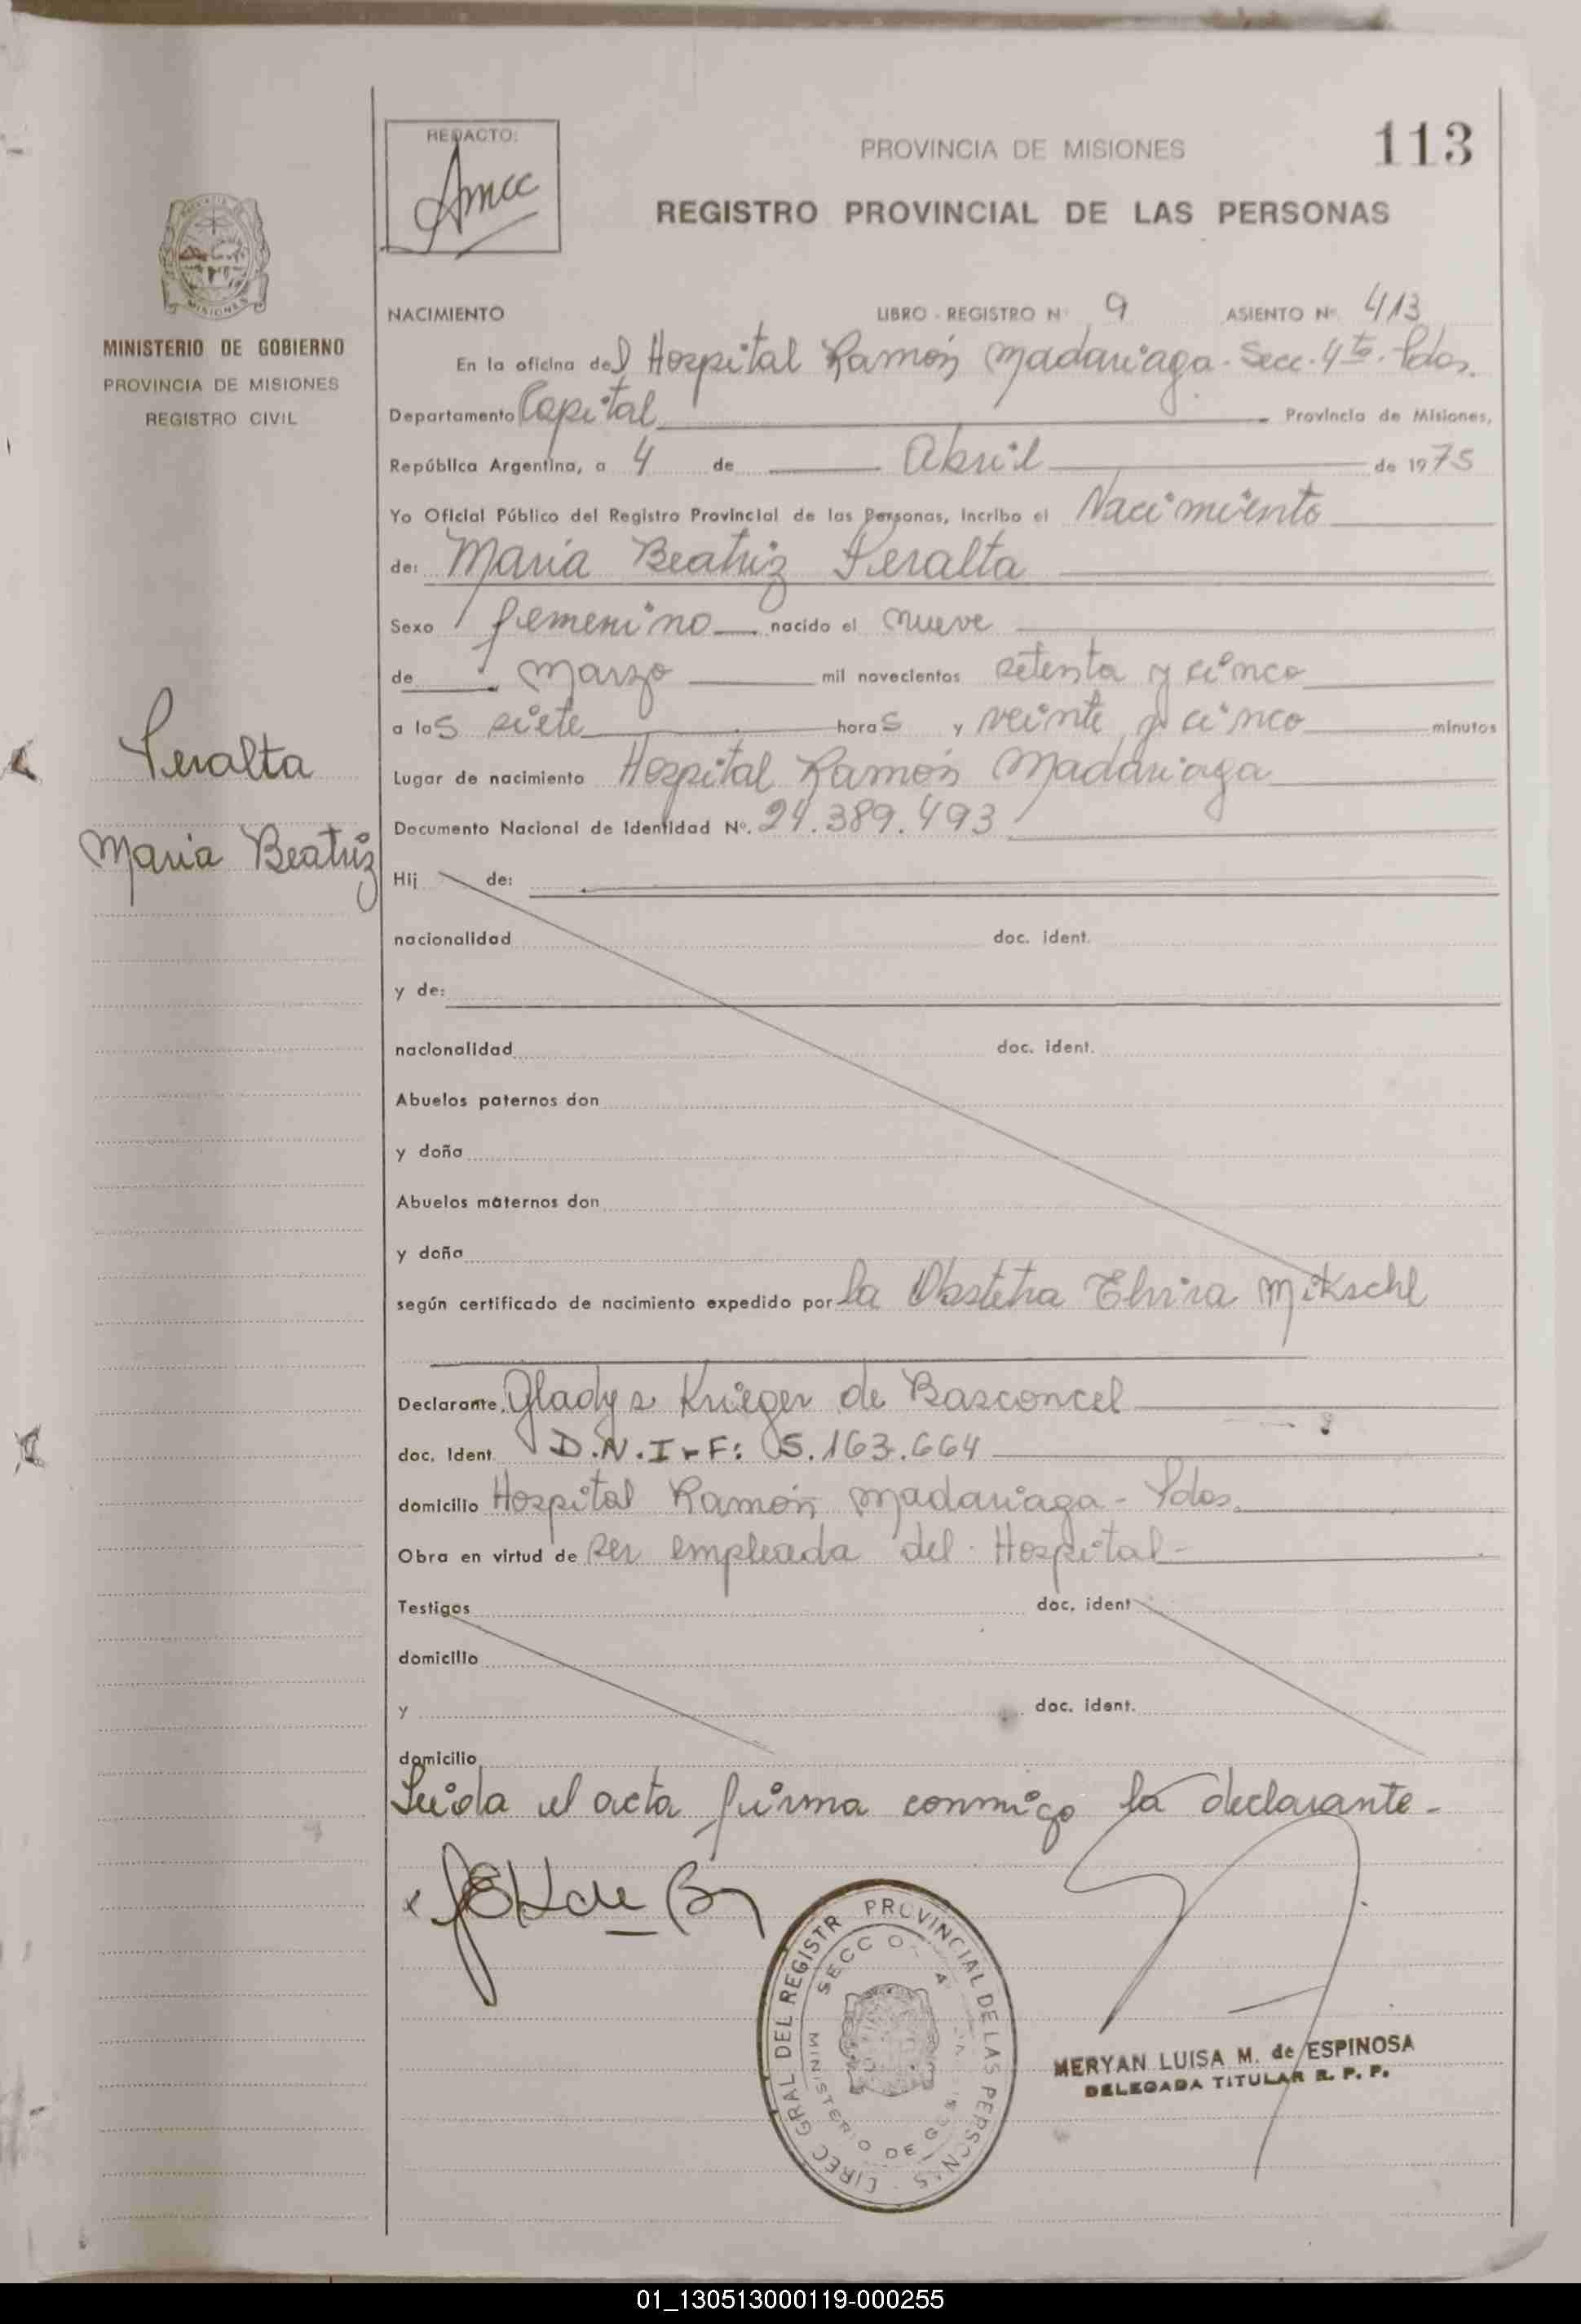 REDACTO:
Amcc
PROVINCIA DE MISIONES
113
REGISTRO PROVINCIAL DE LAS PERSONAS
MINISTERIO DE GOBIERNO
PROVINCIA DE MISIONES
REGISTRO CIVIL
NACIMIENTO LIBRO - REGISTRO Nº 9 ASIENTO Nº 413
En la oficina del Hospital Ramón Madariaga - Secc. 4ta. Pdas.
Departamento Capital Provincia de Misiones,
República Argentina, a 4 de Abril de 1975
Yo Oficial Público del Registro Provincial de las Personas, incribo el Nacimiento
de: Maria Beatriz Peralta
Sexo femenino nacido el nueve
de marzo mil novecientos setenta y cinco
a las siete horas y veinte y cinco minutos
Peralta
Lugar de nacimiento Hospital Ramón Madariaga
Documento Nacional de Identidad Nº. 24.389.493
Maria Beatriz
Hij de:
nacionalidad doc. ident.
y de:
nacionalidad doc. ident.
Abuelos paternos don
y doña
Abuelos maternos don
y doña
según certificado de nacimiento expedido por la Obstetra Elvira Mikschl
Declarante Gladys Krieger de Basconcel
doc. Ident. D.N.I-F: 5.163.664
domicilio Hospital Ramón Madariaga - Pdas.
Obra en virtud de ser empleada del Hospital-
Testigos doc. ident
domicilio
y doc. ident.
domicilio
Leida el acta firma conmigo la declarante-
DIREC GRAL DEL REGISTR PROVINCIAL DE LAS PERSONAS
SECC 4
MINISTERIO DE
MERYAN LUISA M. de ESPINOSA
DELEGADA TITULAR R. P. P.
01_130513000119-000255